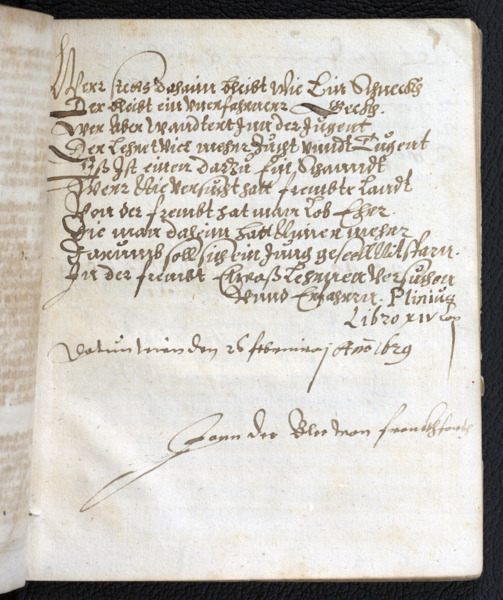 Werr stets dahaim bleibt wie Ein Schneckh
Der bleibt ein unerfahrner Geckh.
Wer Aber Wandtert Inn der Jugent
Der Lehret viel mehr Zucht unndt Tugent
Eß Ist einen darzu Ein Schanndt
Werr Nie versucht hatt frembte Landt
Von der frembt hat man Lob Ehr
Die man daheim hatt Nimer mehr
Darumb soll sich ein Jung gesell
In der frembt Etwaß Lehrnen versuchen
Unnd Erfahrn. Plinius
Libro XIV
Datum Wien den 26 februarj Anno 1629
von franckhfortt